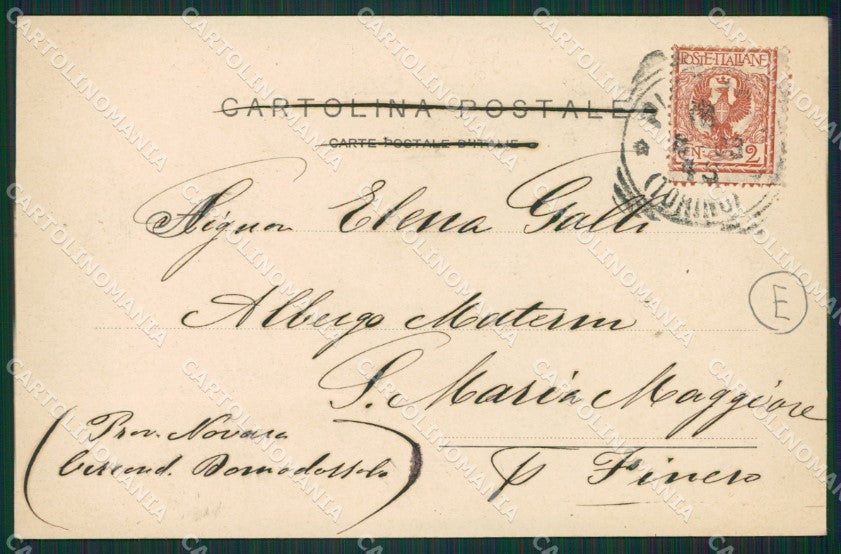 CARTOLINA POSTALE
CARTE POSTALE D'ITALIE
POSTE·ITALIANE
CEN 2
(TORINO)
Signora Elena Galli
Albergo Materni
S. Maria Maggiore
p Finero
(Prov. Novara
Circond. Domodossola)
E
CARTOLINOMANIA